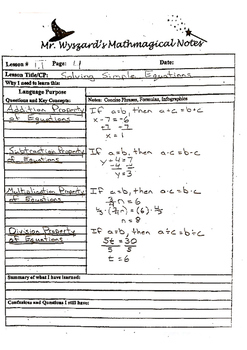 Mr. Wyszard's Mathmagical Notes
Lesson # 1 Page: Date:
Lesson Title/CP: Solving Simple Equations
Why I need to learn this:
Language Purpose
Questions and Key Concepts: Notes: Concise Phrases, Formulas, Infographics
Addition Property of Equations
If a=b, then a+c=b+c
x-7=-6
+7 +7
x=1
Subtraction Property of Equations
If a=b, then a-c=b-c
y+4=7
-4 -4
y=3
Multiplication Property of Equations
If a=b, then a·c=b·c
3/4 n=6
4/3·(3/4 n)=(6)·4/3
n=8
Division Property of Equations
If a=b, then a÷c=b÷c
5t=30
5 5
t=6
Summary of what I have learned:
Confusions and Questions I still have: